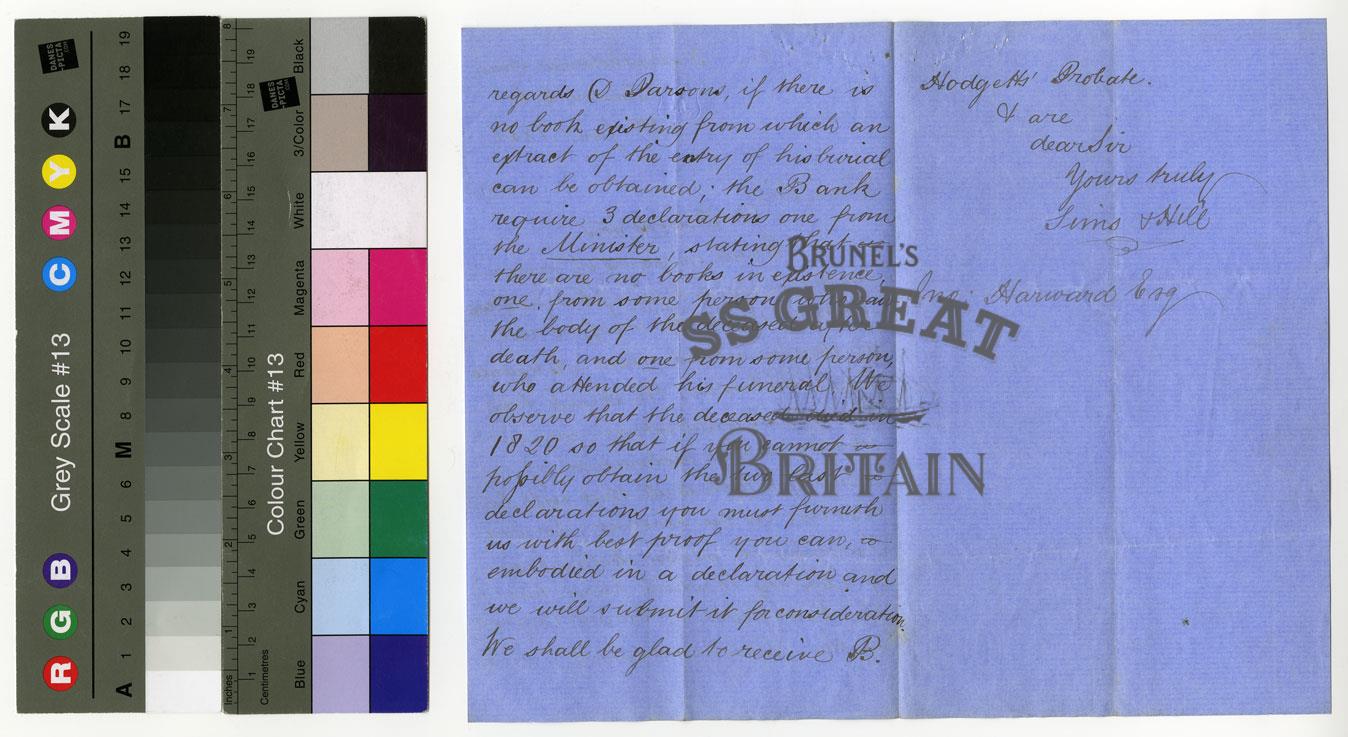 regards D Parsons, if there is
no book existing from which an
extract of the entry of his burial
can be obtained; the Bank
require 3 declarations one from
the Minister, stating that
there are no books in existence,
one from some person who saw
the body of the deceased after
death, and one from some person,
who attended his funeral We
observe that the deceased died in
1820 so that if you cannot
possibly obtain the two last
declarations you must furnish
us with best proof you can,
embodied in a declaration and
we will submit it for consideration.
We shall be glad to receive B.
Hodgetts' Probate.
& are
dear Sir
Yours truly
Sims & Hill
Jno. Harward Esq
BRUNEL'S
SS GREAT
BRITAIN
Grey Scale #13
DANES
-PICTA
.COM
R G B C M Y K
A 1 2 3 4 5 6 M 8 9 10 11 12 13 14 15 B 17 18 19
Colour Chart #13
DANES
-PICTA
.COM
Inches 1 2 3 4 5 6 7 8
Centimetres 1 2 3 4 5 6 7 8 9 10 11 12 13 14 15 16 17 18 19
Blue
Cyan
Green
Yellow
Red
Magenta
White
3/Color
Black